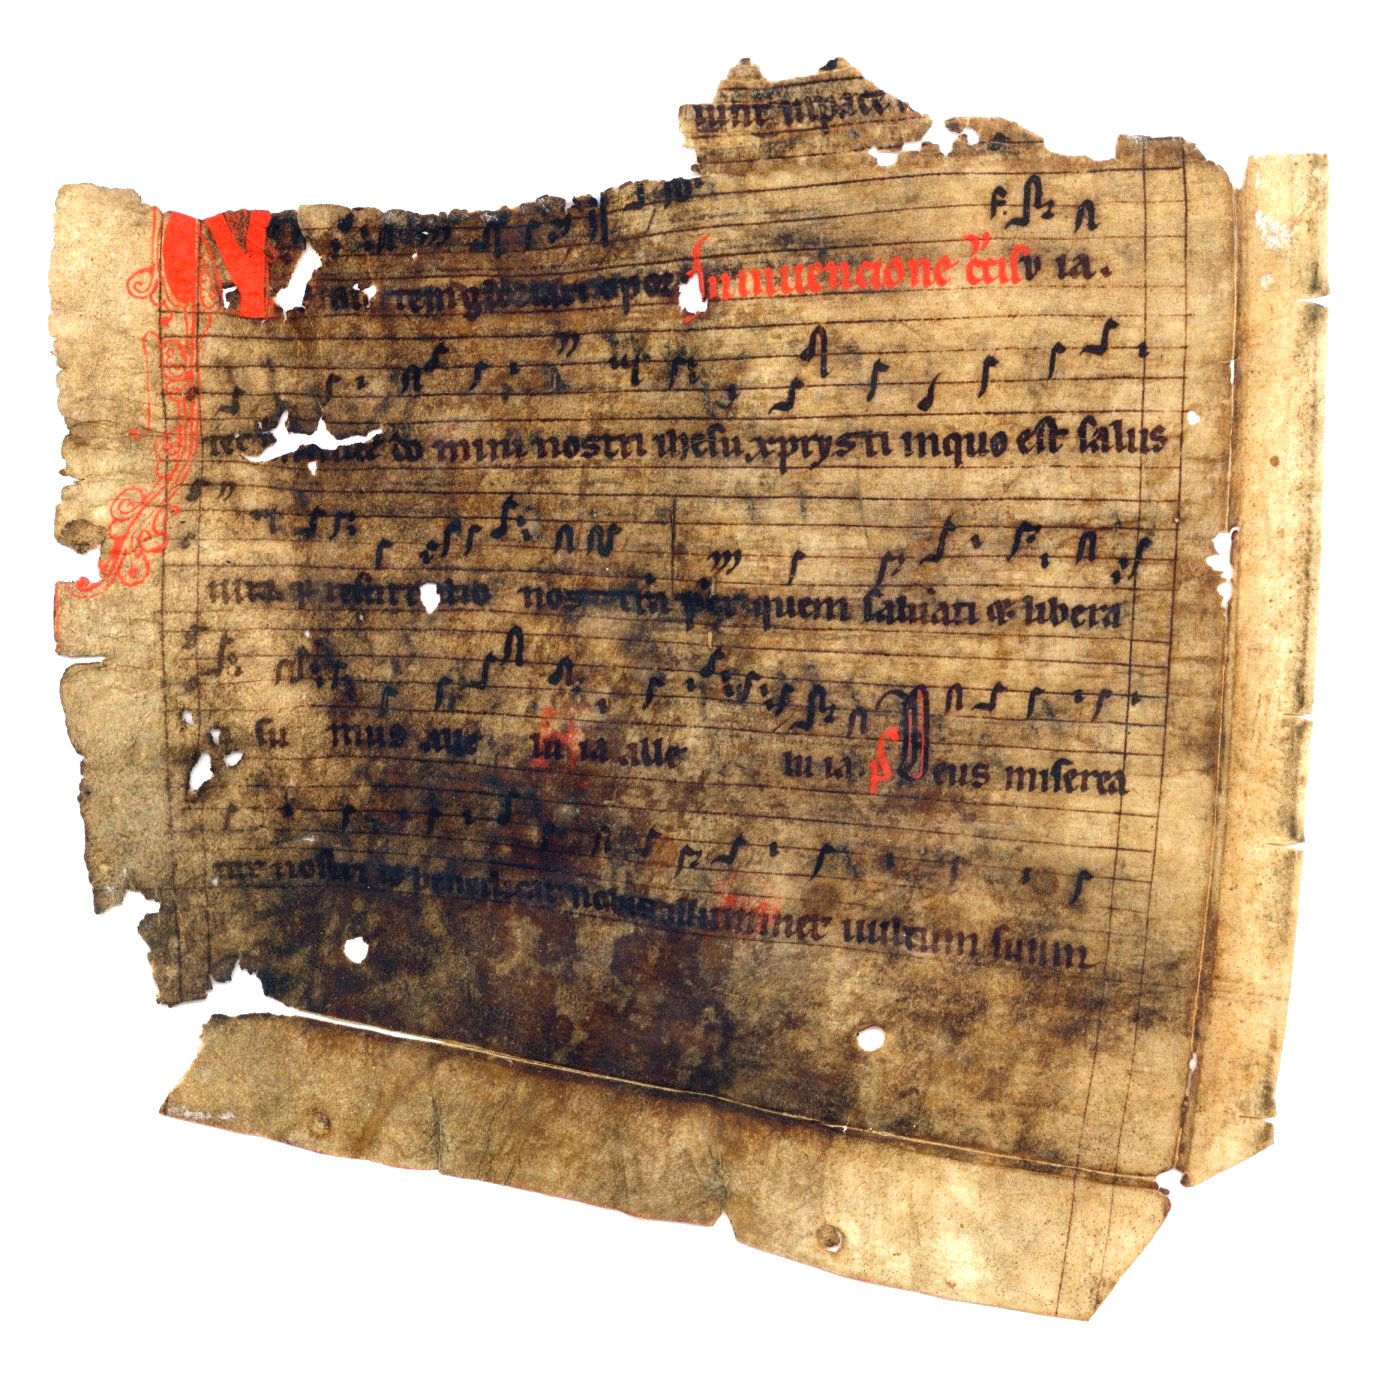 sunt in pace
os autem gloriari opor In inuencione crucis v ia.
tet in cruce do mini nostri ihesu xprysti in quo est salus
uita & resurre ctio nostra per quem saluati & libera
ti su mus alle lu ia alle lu ia. ps Deus miserea
tur nostri & benedicat nobis illuminet uultum suum